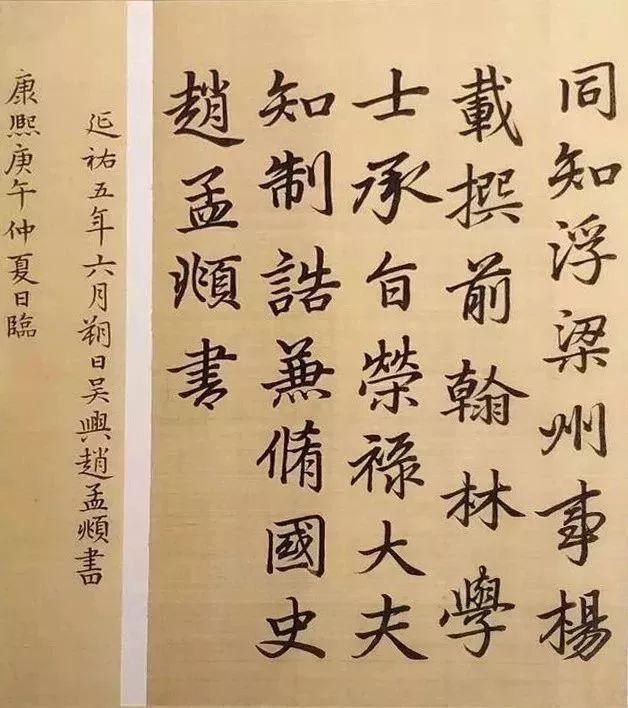 同知浮梁州事楊
載撰前翰林學
士承旨榮祿大夫
知制誥兼脩國史
趙孟頫書
延祐五年六月朔日吳興趙孟頫書
康熙庚午仲夏日臨